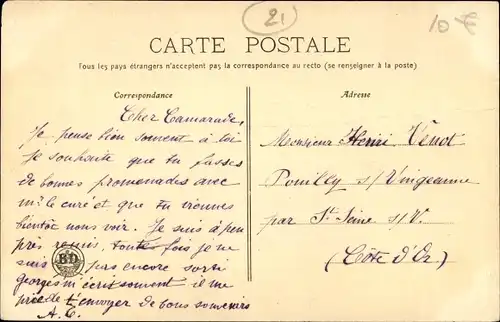 21
10 F
CARTE POSTALE
Tous les pays étrangers n'acceptent pas la correspondance au recto (se renseigner à la poste)
Correspondance
Cher Camarade,
Je pense bien souvent à toi
Je souhaite que tu fasses
de bonnes promenades avec
mr le curé et que tu viennes
bientôt nous voir. Je suis à peu
près remis, toute fois je ne
suis pas encore sorti
BD
Georges m'écrit souvent il me
prie de t'envoyer de bons souvenirs
A. C.
Adresse
Monsieur Henri Venot
Pouilly s/Vingeanne
par St Seine s/V.
(Côte d'Or)